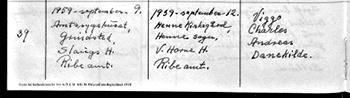 39
1959-september-9.
Amtssygehuset,
Grindsted,
Slaugs H.
Ribe amt.
1959-september-12.
Henne Kirkegård,
Henne sogn,
V. Horne H.
Ribe amt.
Viggo
Charles
Andreas
Danekilde.